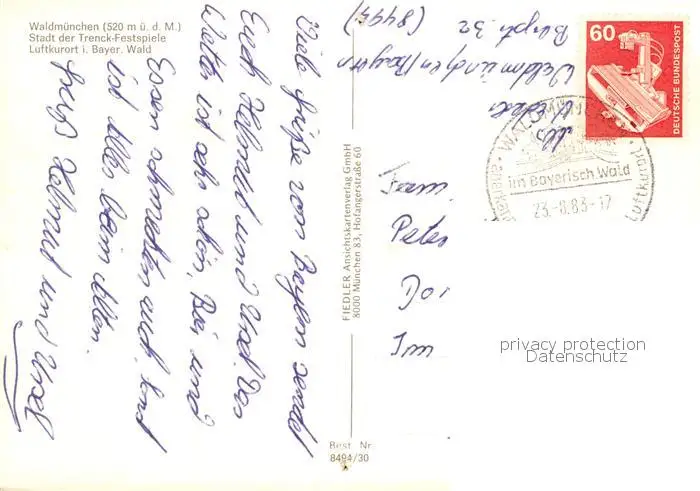 Waldmünchen (520 m ü. d. M.)
Stadt der Trenck-Festspiele
Luftkurort i. Bayer. Wald
Viele Grüße von Bayern sendet
Euch Helmut und Ursel. Das
Wetter ist sehr schön, Bier und
Essen schmecken auch, und
ist alles beim alten.
Gruß Helmut und Ursel
FIEDLER Ansichtskartenverlag GmbH
8000 München 83, Hofangerstraße 60
Best. Nr.
8494/30
32
Waldmünchen/Bayern
(8494)
60
DEUTSCHE BUNDESPOST
im Bayerisch. Wald
Luftkurort
23.-8.83-17
Fam
Peter
Do
Im
privacy protection
Datenschutz